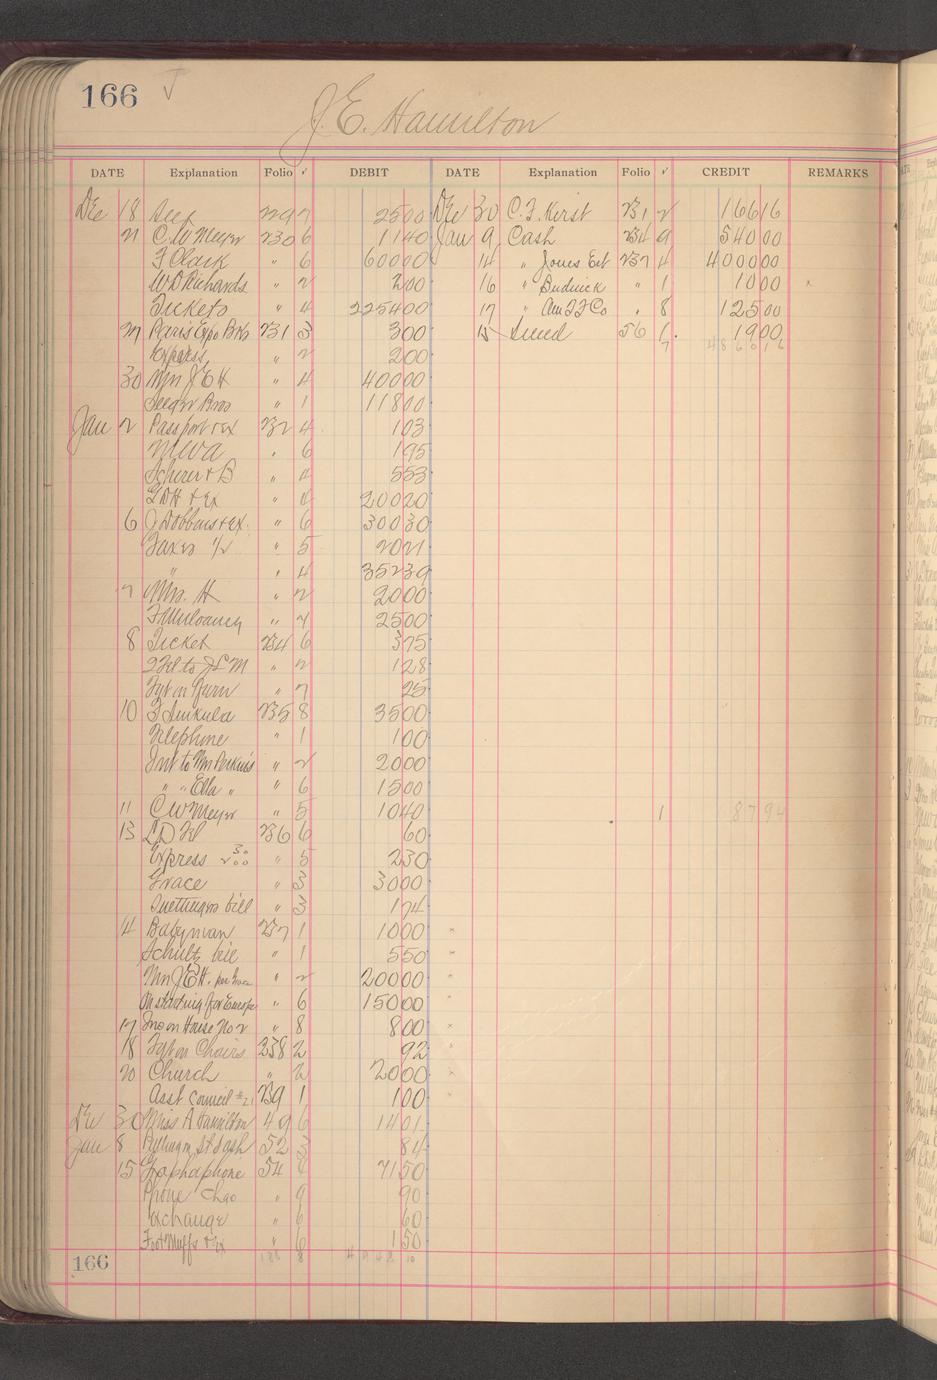 166
J. E. Hamilton
DATE Explanation Folio √ DEBIT DATE Explanation Folio √ CREDIT REMARKS
Dec 18 229 7 2500 Dec 30 C. F. Kerst 231 2 166 16
21 C. W Meyer 230 6 1140 Jan 9 Cash 234 9 540 00
F Clark " 6 60000 14 " Jones Est 237 4 4000 00
W D Richards " 2 200 16 " " 1 10 00
Tickets " 4 225400 17 " Am T F Co " 8 125 00
27 Paris Expo Bks 231 3 300 15 56 1 19 00
Express " 2 200 7 4860 16
30 Mrs J E H " 4 40000
Seeger Bros " 1 11800
Jan 2 Passport & Ex 232 4 103
" 6 195
Scherer & B " 4 553
L D H & Ex " 4 20020
6 J Dobbins & Ex. " 6 30030
Taxes 1/2 " 5 2021
" " 4 35239
7 Mrs. H " 2 2000
" 7 2500
8 Ticket 234 6 375
" 2 128
Fgt on Furn " 7 25
10 235 8 3500
Telephone " 1 100
Int to Mrs Perkins " 2 2000
" " Ella " " 6 1500
11 C W Meyer " 5 1040 1 87 94
13 L D 236 6 60
Express 30 200 " 5 230
Grace " 3 3000
bill " 3 174
14 237 1 1000
Schultz bill " 1 550
Mrs J E H. " 2 20000
On starting for Europe " 6 15000
17 Ins on House No 2 " 8 800
18 Fgt on Chairs 238 2 92
20 Church " 2 2000
Asst Council #21 239 1 100
Dec 30 Miss A Hamilton 49 6 1401
Jan 8 St Sash 52 3 84
15 Graphaphone 54 7150
Phone Chgo " 9 90
Exchange " 6 60
Foot Muffs & Ex " 6 150
166